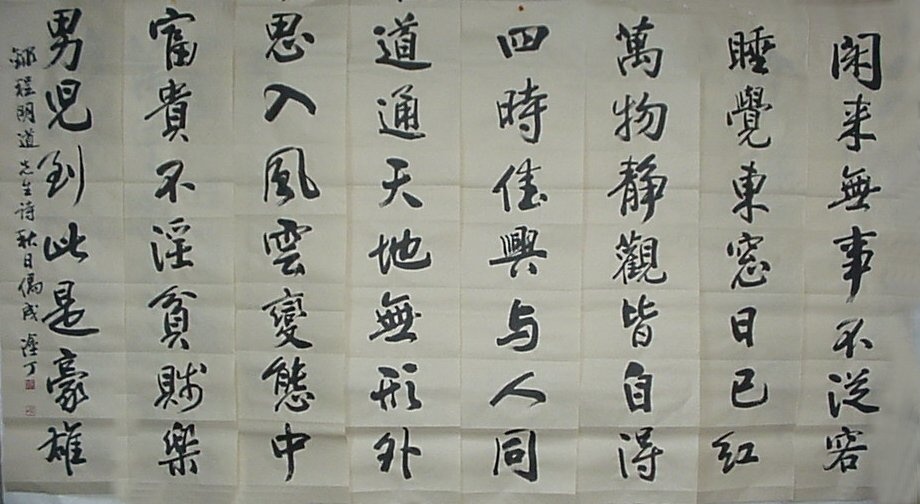 閑来無事不從容
睡覺東窓日已红
萬物静觀皆自得
四時佳興与人同
道通天地無形外
思入風雲變態中
富貴不淫貧賤樂
男児到此是豪雄
錄程明道先生诗秋日偶成